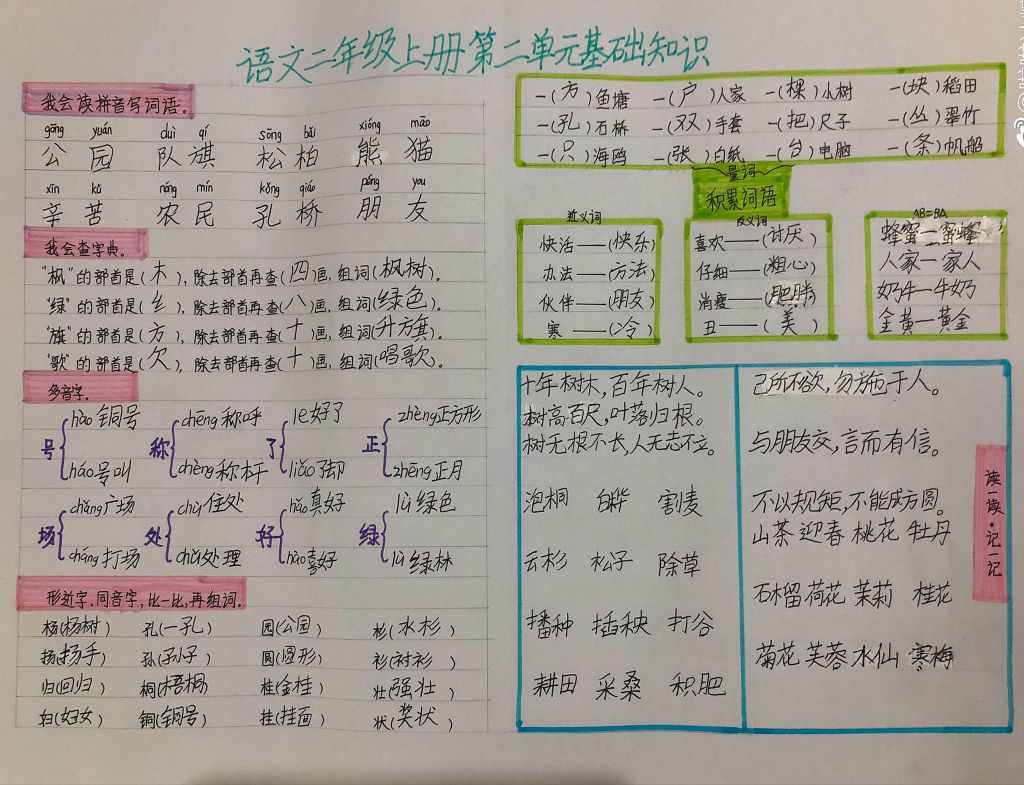 语文二年级上册第二单元基础知识
我会读拼音写词语。
gōng yuán duì qí sōng bǎi xióng māo
公园 队旗 松柏 熊猫
xīn kǔ nóng mín kǒng qiáo péng you
辛苦 农民 孔桥 朋友
我会查字典。
“枫”的部首是(木),除去部首再查(四)画,组词(枫树)。
“绿”的部首是(纟),除去部首再查(八)画,组词(绿色)。
“旗”的部首是(方),除去部首再查(十)画,组词(升方旗)。
“歌”的部首是(欠),除去部首再查(十)画,组词(唱歌)。
多音字。
号 hào铜号 háo号叫
称 chēng称呼 chèng称杆
了 le好了 liǎo了却
正 zhèng正方形 zhēng正月
场 chǎng广场 cháng打场
处 chù住处 chǔ处理
好 hǎo真好 hào喜好
绿 lǜ绿色 lù绿林
形近字、同音字,比一比,再组词。
杨(杨树) 孔(一孔) 园(公园) 杉(水杉)
扬(扬手) 孙(子小子) 圆(圆形) 衫(衬衫)
归(回归) 桐(梧桐) 桂(金桂) 壮(强壮)
妇(妇女) 铜(铜号) 挂(挂面) 状(奖状)
一(方)鱼塘 一(户)人家 一(棵)小树 一(块)稻田
一(孔)石桥 一(双)手套 一(把)尺子 一(丛)翠竹
一(只)海鸥 一(张)白纸 一(台)电脑 一(条)帆船
量词
积累词语
近义词
快活——(快乐)
办法——(方法)
伙伴——(朋友)
寒——(冷)
反义词
喜欢——(讨厌)
仔细——(粗心)
消瘦——(肥胖)
丑——(美)
AB=BA
蜂蜜—蜜蜂
人家—家人
奶牛—牛奶
金黄—黄金
十年树木,百年树人。
树高百尺,叶落归根。
树无根不长,人无志不立。
泡桐 白桦 割麦
云杉 松子 除草
播种 插秧 打谷
耕田 采桑 积肥
己所不欲,勿施于人。
与朋友交,言而有信。
不以规矩,不能成方圆。
山茶 迎春 桃花 牡丹
石榴 荷花 茉莉 桂花
菊花 芙蓉 水仙 寒梅
读一读·记一记